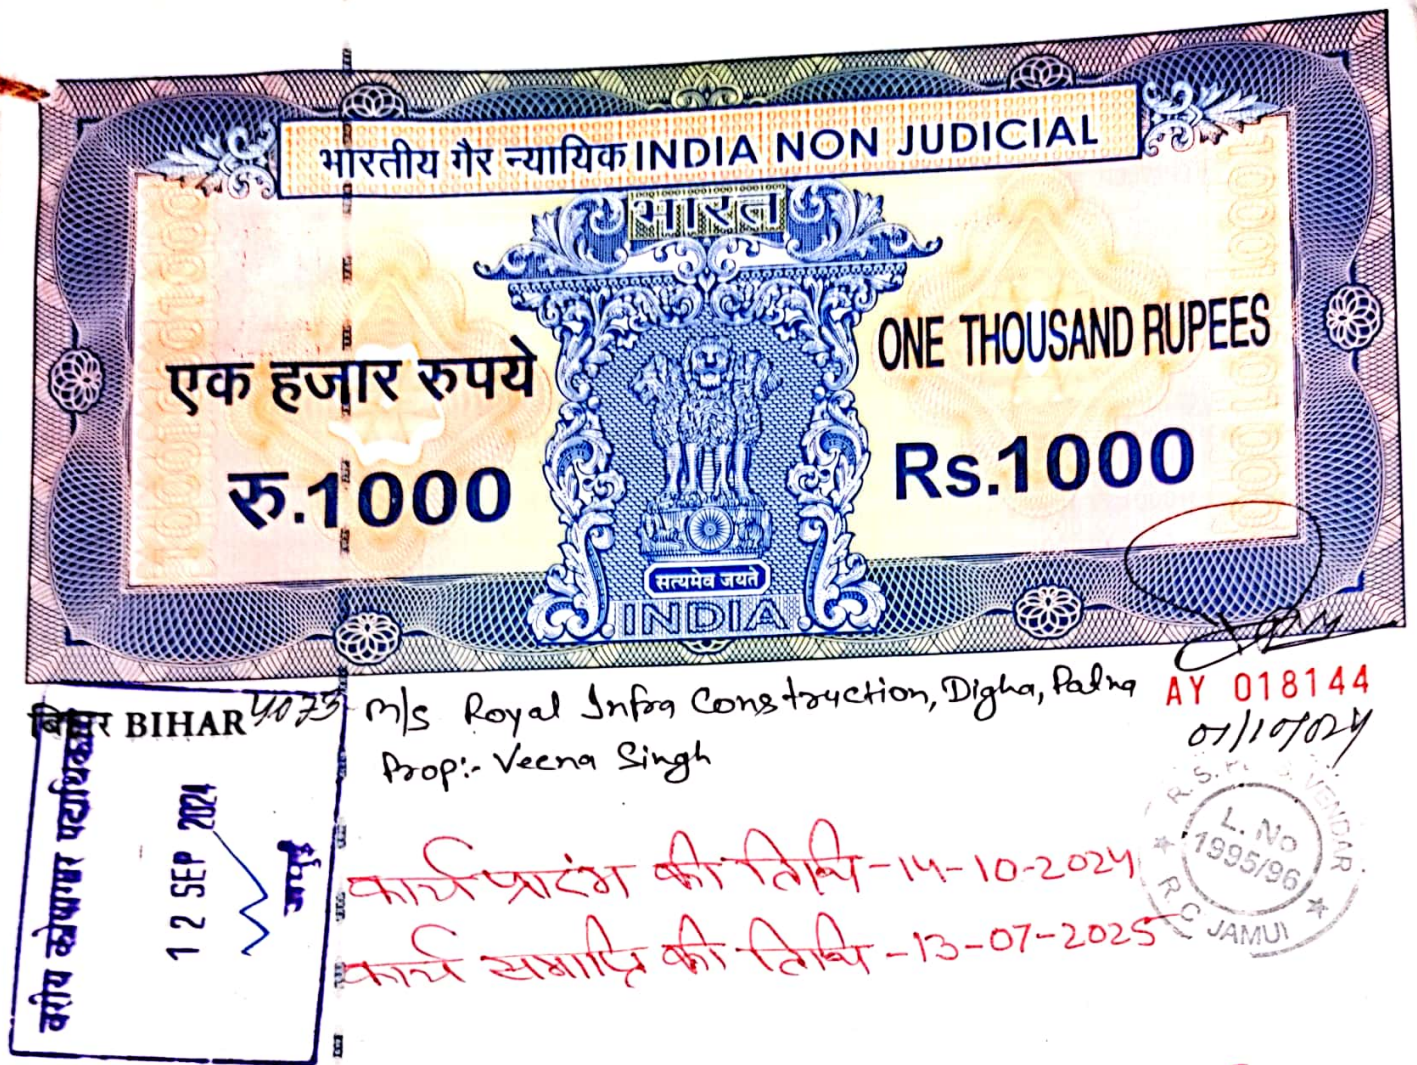 भारतीय गैर न्यायिक INDIA NON JUDICIAL
भारत
एक हजार रुपये
रु.1000
ONE THOUSAND RUPEES
Rs.1000
सत्यमेव जयते
INDIA
बिहार BIHAR
4073
M/s Royal Infra Construction, Digha, Patna
Prop:- Veena Singh
AY 018144
01/10/024
वरीय कोषागार पदाधिकारी
12 SEP 2024
जमुई
कार्य प्रारंभ की तिथि-14-10-2024
कार्य समाप्ति की तिथि-13-07-2025
VENDAR
L. No
1995/96
JAMUI